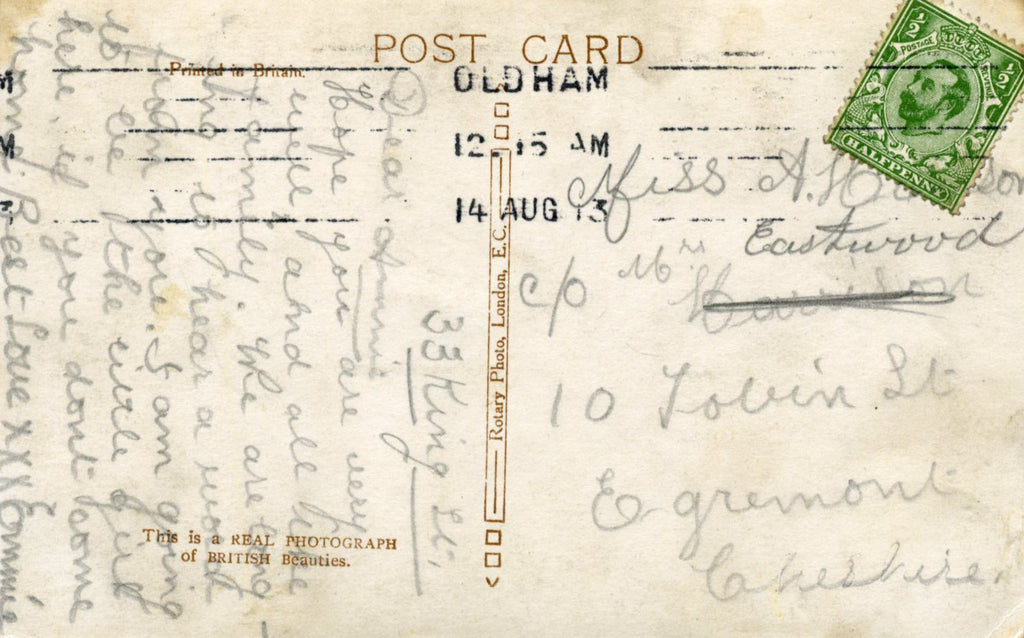 POST CARD
Printed in Britain.
OLDHAM
12.15 AM
14 AUG 13
½ ½
POSTAGE
HALFPENNY
33 King St.
Dear Annie
Hope you are very
well and all the
family. We are
to hear a word
from you. I am going
to see the little girl
here if you dont come
home Best Love xxx Emmie
Rotary Photo, London, E.C.
This is a REAL PHOTOGRAPH
of BRITISH Beauties.
Miss A.
Eastwood
c/o Mrs Harrison
10 Tobin St
Egremont
Cheshire.